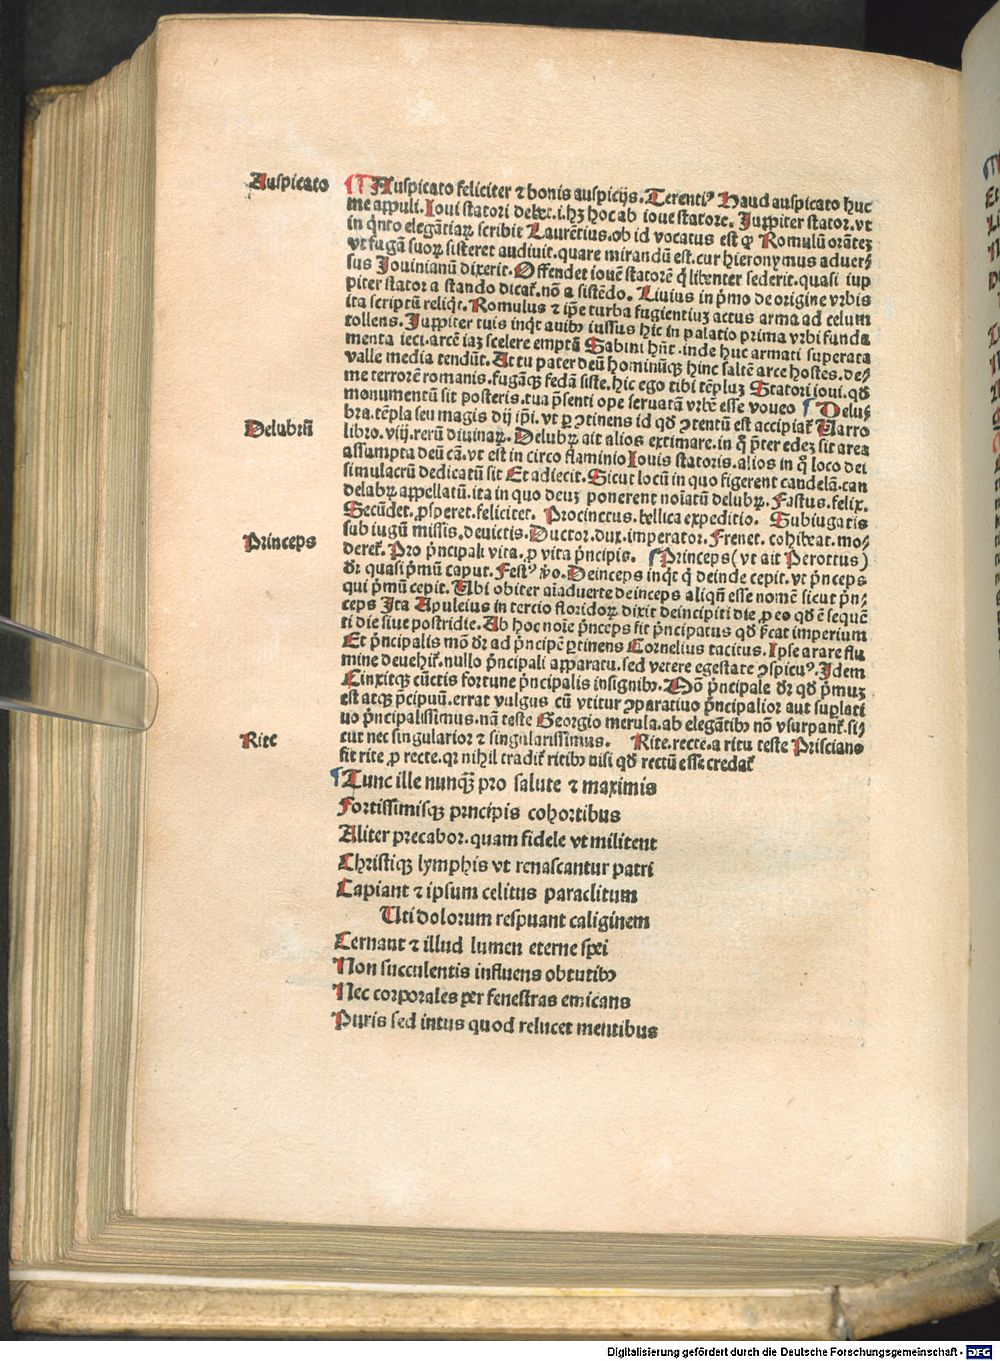 Auspicato
¶ Auspicato feliciter ⁊ bonis auspicijs. Terentiꝰ Haud auspicato huc
me appuli. Ioui statori debet. i. hꝫ hoc ab ioue statore. Juppiter stator. vt
in q̇nto elegātiaꝝ scribit Laurētius. ob id vocatus est qꝛ Romulū orātez
vt fugā suoꝝ sisteret audiuit. quare mirandū est. cur hieronymus aduer⸗
sus Jouinianū dixerit. Offendet iouē statorē q̇ libenter sederit. quasi iup
piter stator a stando dicaꞇ̃. nō a sistēdo. Liuius in pꝛ̃mo de origine vrbis
ita scriptū reliq̇t. Romulus ⁊ ip̄e turba fugientiuz actus arma ad celum
tollens. Juppiter tuis inq̇t auibꝰ iussus hic in palatio prima vrbi funda
menta ieci. arcē iaz scelere emptā Sabini hn̄t. inde huc armati superata
valle media tendūt. At tu pater deū hominūqꝫ hinc saltē arce hostes. de⸗
me terrorē romanis. fugāqꝫ fedā siste. hic ego tibi tēpluz Statori ioui. qd̄
monumentū sit posteris. tua p̄senti ope seruatā vrbē esse voueo ¶ Delu⸗
Delubrū
bra. tēpla seu magis dij ip̄i. vt ꝑ ↄtinens id qd̄ ↄtentū est accipiaꞇ̃ Varro
libro. viij. rerū diuinaꝝ. Delubꝝ ait alios extimare. in q̊ p̄ter edez sit area
assumpta deū cā. vt est in circo flaminio Iouis statoris. alios in q̊ loco dei
simulacrū dedicatū sit Et adiecit. Sicut locū in quo figerent candelā. can
delabꝝ appellatū. ita in quo deuz ponerent noīatū delubꝝ. Fastus. felix.
Secūdet. ꝓsperet. feliciter. Procinctus. bellica expeditio. Subiugatis
sub iugū missis. deuictis. Ductor. dux. imperator. Frenet. cohibeat. mo⸗
Princeps
dereꞇ̃. Pro p̄ncipali vita. ꝓ vita p̄ncipis. ¶ Princeps (vt ait Perottus)
dr̄ quasi p̄mū caput. Festꝰ v̊o. Deinceps inq̇t q̇ deinde cepit. vt p̄nceps
qui p̄mū cepit. Ubi obiter aīaduerte deinceps aliqn̄ esse nomē sicut p̄n⸗
ceps Ita Apuleius in tercio floridoꝝ dixit deincipiti die ꝓ eo qd̄ ē sequē
ti die siue postridie. Ab hoc noīe p̄nceps fit p̄ncipatus qd̄ s̄cat imperium
Et p̄ncipalis mō dr̄ ad p̄ncipē ꝑtinens Cornelius tacitus. Ipse arare flu
mine deuehiꞇ̃. nullo p̄ncipali apparatu. sed vetere egestate ↄspicuꝰ. Idem
Cinxitqꝫ cūctis fortune p̄ncipalis insignibꝰ. Mō p̄ncipale dr̄ qd̄ p̄muz
est atqꝫ p̄cipuū. errat vulgus cū vtitur ↄparatiuo p̄ncipalior aut suplati
uo p̄ncipalissimus. nā teste Georgio merula. ab elegātibꝰ nō vsurpanꞇ̃. si⸗
Rite
cut nec singularior ⁊ singularissimus. Rite. recte. a ritu teste Prisciano
fit rite ꝓ recte. qꝛ nihil tradiꞇ̃ ritibꝰ nisi qd̄ rectū esse credaꞇ̃
¶ Tunc ille nunqꝫ̃ pro salute ⁊ maximis
Fortissimisqꝫ principis cohortibus
Aliter precabor. quam fidele vt militent
Christiqꝫ lymphis vt renascantur patri
Capiant ⁊ ipsum celitus paraclitum
Uti dolorum respuant caliginem
Cernant ⁊ illud lumen eterne spei
Non succulentis influens obtutibꝰ
Nec corporales per fenestras emicans
Puris sed intus quod relucet mentibus
Digitalisierung gefördert durch die Deutsche Forschungsgemeinschaft - DFG